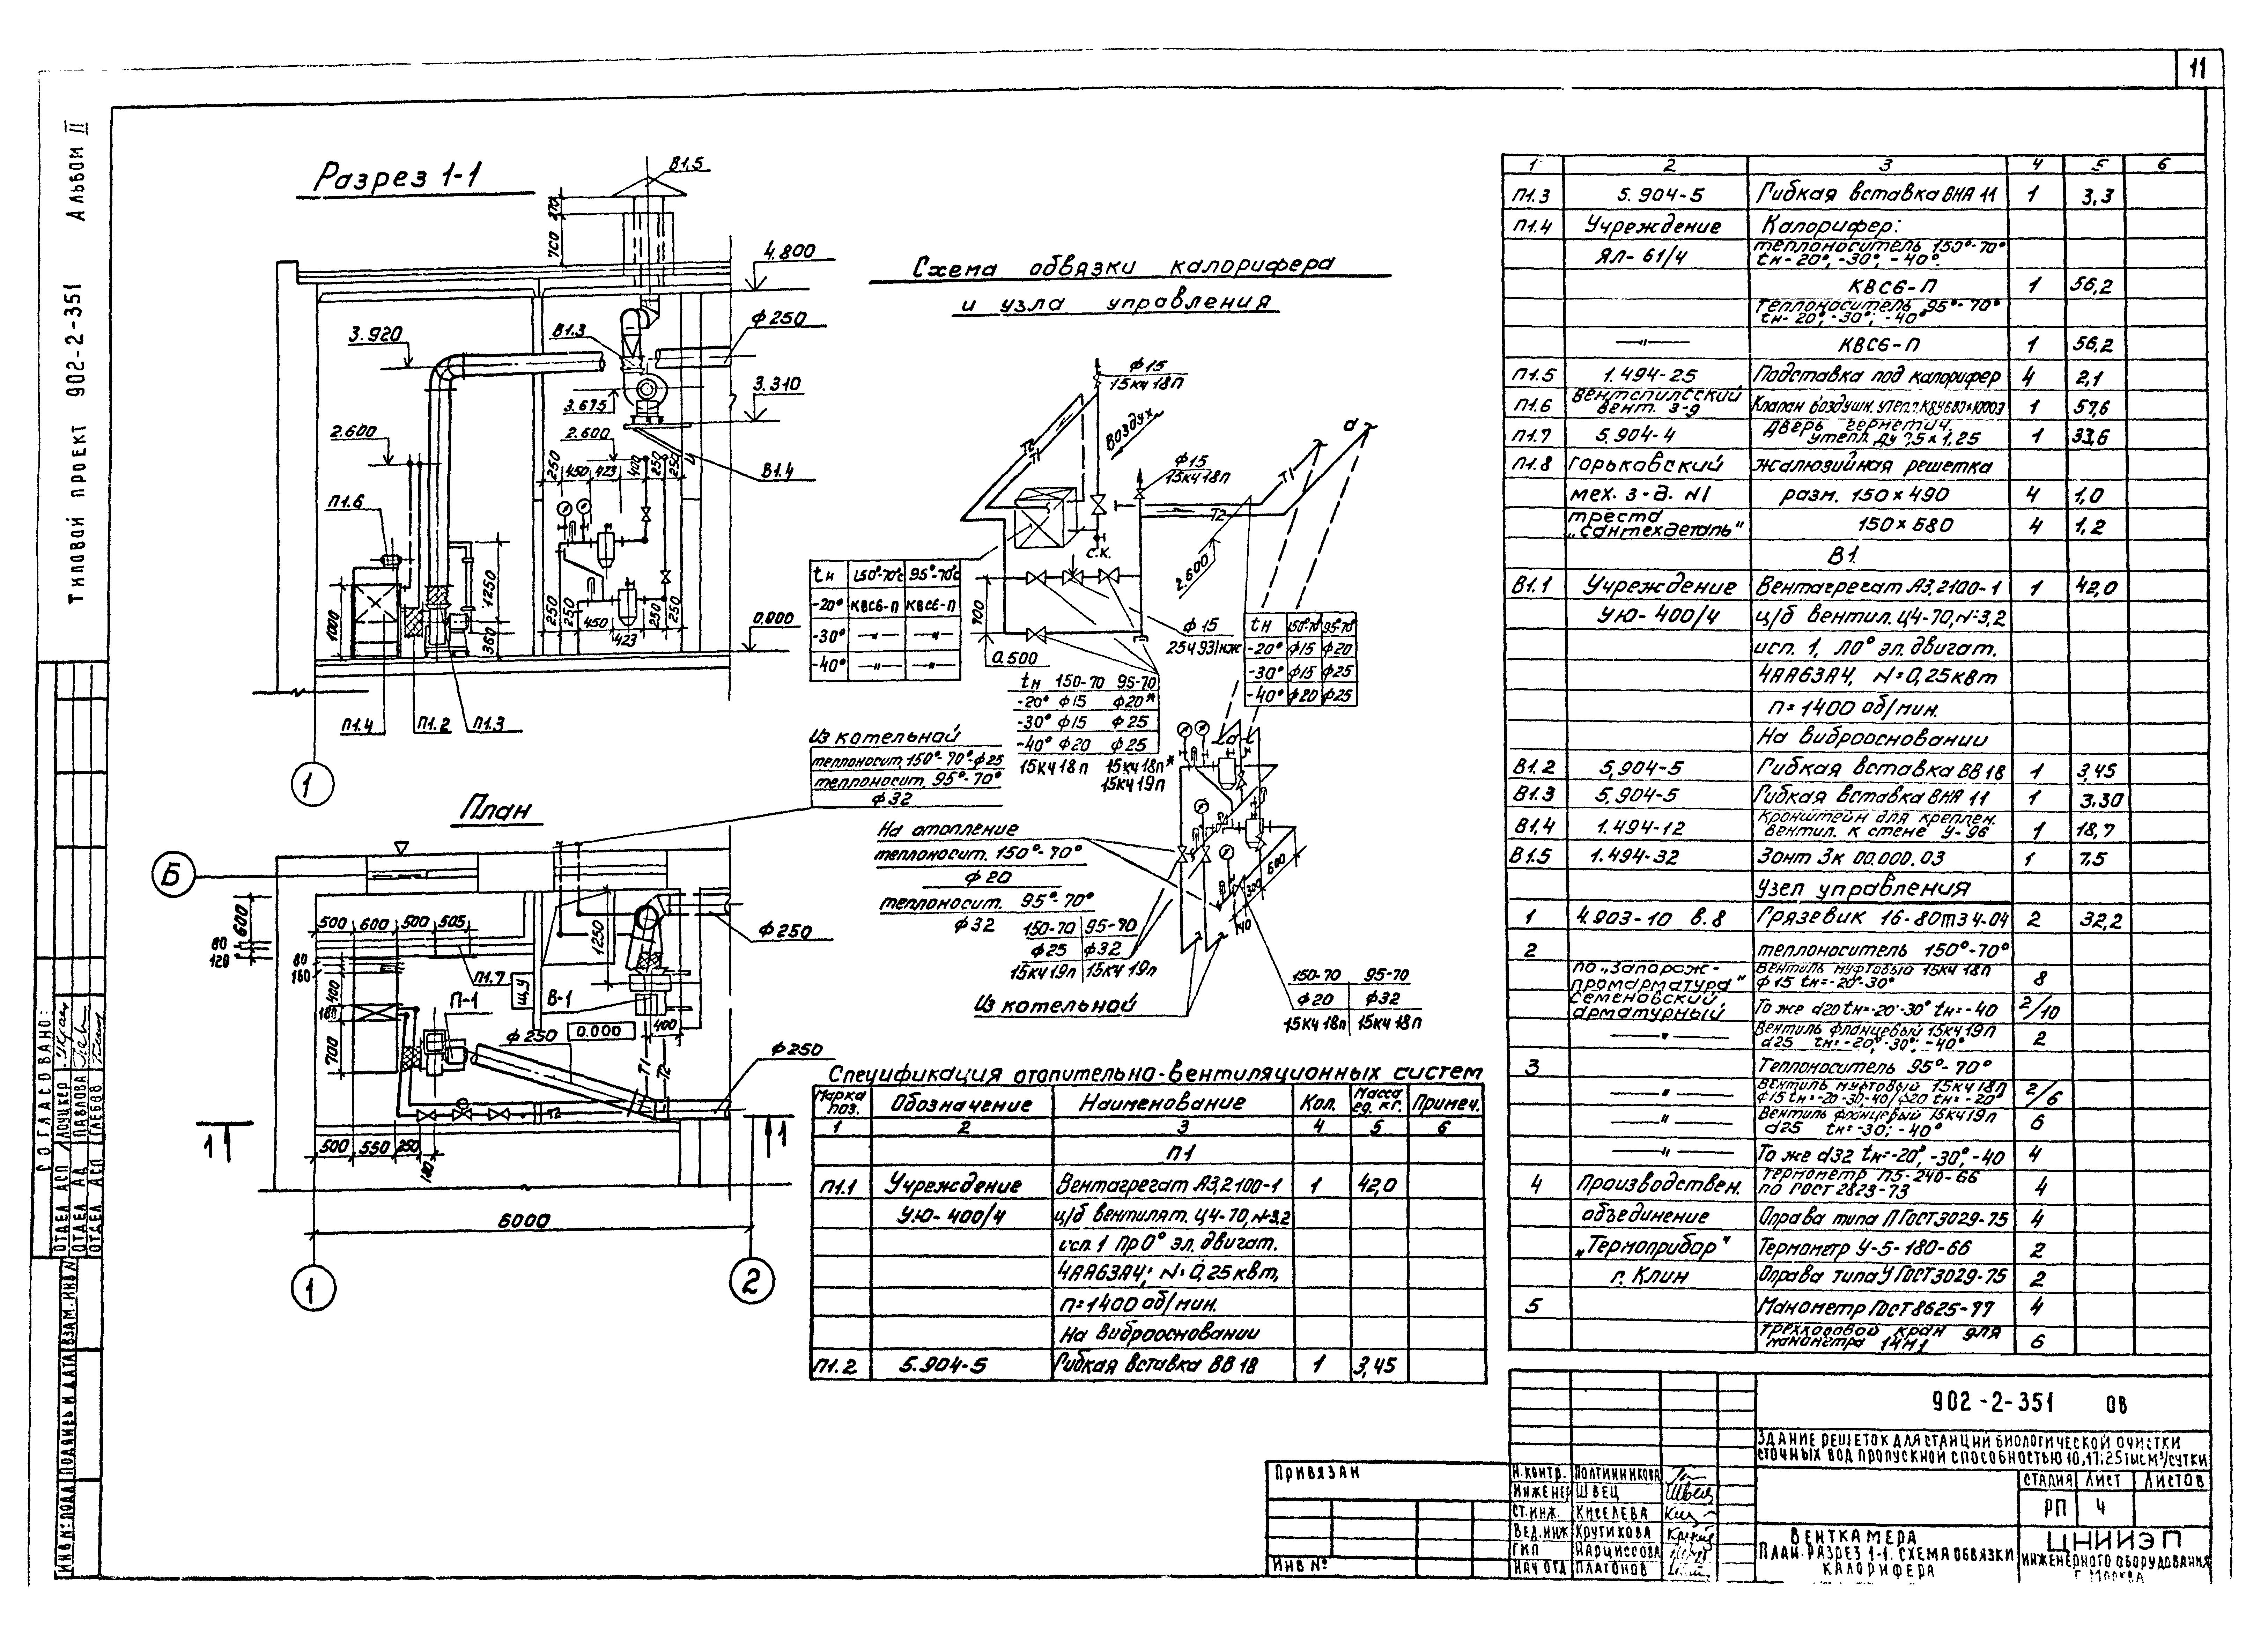 11
Типовой проект 902-2-351 Альбом II
Разрез 1-1
В1.5
270
700
4.800
ф250
В1.3
3.920
3.310
3.675
2.600
2.600
250 450 423 400 250 250
В1.4
П1.6
1000
1250
360
250 250 450 423 250 250
0.000
П1.4 П1.2 П1.3
1
Схема обвязки калорифера
и узла управления
ф15
15кч18п
Воздух
Т2
Т1
ф15
15кч18п
Т1
Т2
d
с.к.
2.600
900
0.500
ф15
25ч931нж
tн 150°-70°с 95°-70°с
-20° КВС6-П КВС6-П
-30° —"— —"—
-40° —"— —"—
tн 150°-70° 95°-70°
-20° ф15 ф20
-30° ф15 ф25
-40° ф20 ф25
tн 150-70 95-70
-20° ф15 ф20*
-30° ф15 ф25
-40° ф20 ф25
15кч18п 15кч18п*
15кч19п
Из котельной
теплоносит. 150°-70° ф25
теплоносит. 95°-70°
ф32
На отопление
теплоносит. 150°-70°
ф20
теплоносит. 95°-70°
ф32
150-70 95-70
ф25 ф32
15кч19п 15кч19п
Из котельной
600
320
150-70 95-70
ф20 ф32
15кч18п 15кч18п
План
Б
600
80
120
500 600 500 505
80
160
400
180
700
П1.7
щ.у
П-1
В-1
1250
ф250
ф250
0.000
400
ф250
Т1
Т2
Т2
1 1
500 550 250
180
6000
1 2
Спецификация отопительно-вентиляционных систем
Марка поз. Обозначение Наименование Кол. Масса ед. кг. Примеч.
1 2 3 4 5 6
П1
П1.1 Учреждение Вентагрегат А3,2100-1 1 42,0
УЮ-400/4 ц/б вентилят. Ц4-70, N-3,2
исп. 1 Пр0° эл. двигат.
4АА63А4; N=0,25квт,
п=1400 об/мин.
На виброосновании
П1.2 5.904-5 Гибкая вставка ВВ 18 1 3,45
1 2 3 4 5 6
П1.3 5.904-5 Гибкая вставка ВНА 11 1 3,3
П1.4 Учреждение Калорифер:
ЯЛ-61/4 теплоноситель 150°-70°
tн-20°, -30°, -40°.
КВС6-П 1 56,2
теплоноситель 95°-70°
tн-20°, -30°, -40°
—"— КВС6-П 1 56,2
П1.5 1.494-25 Подставка под калорифер 4 2,1
П1.6 Вентспилсский
вент. з-д Клапан воздушн. утепл. КВУ600×1000Э 1 57,6
П1.7 5.904-4 Дверь герметич.
утепл. Ду ?,5×1,25 1 33,6
П1.8 Горьковский жалюзийная решетка
мех. з-д. N1 разм. 150×490 4 1,0
треста
„Сантехдеталь" 150×580 4 1,2
В1.
В1.1 Учреждение Вентагрегат А3,2100-1 1 42,0
УЮ-400/4 ц/б вентил. Ц4-70, N-3,2
исп. 1, Л0° эл. двигат.
4АА63А4, N=0,25квт
п=1400 об/мин.
На виброосновании
В1.2 5.904-5 Гибкая вставка ВВ 18 1 3,45
В1.3 5.904-5 Гибкая вставка ВНА 11 1 3,30
В1.4 1.494-12 Кронштейн для креплен.
вентил. к стене У-96 1 18,7
В1.5 1.494-32 Зонт Зк 00.000.03 1 7,5
Узел управления
1 4.903-10 в.8 Грязевик 16-80ТЗ4-04 2 32,2
2 теплоноситель 150°-70°
по „Запорож-
промарматура" Вентиль муфтовый 15кч18п
ф15 tн=-20°-30° 8
Семеновский
арматурный То же d20 tн=-20°-30° tн=-40 2/10
—"— Вентиль фланцевый 15кч19п
d25 tн=-20°, -30°, -40° 2
3 Теплоноситель 95°-70°
—"— Вентиль муфтовый 15кч18п
ф15 tн=-20-30-40/ф20 tн=-20° 2/6
—"— Вентиль фланцевый 15кч19п
d25 tн=-30°, -40° 6
—"— То же d32 tн=-20°, -30°, -40 4
4 Производствен. Термометр П5-240-66
по ГОСТ 2823-73 4
объединение Оправа типа П ГОСТ3029-75 4
„Термоприбор" Термометр У-5-180-66 2
г. Клин Оправа типа У ГОСТ3029-75 2
5 Манометр ГОСТ8625-77 4
Трехходовой кран для
манометра 14М1 6
902-2-351 ОВ
Здание решеток для станции биологической очистки
сточных вод пропускной способностью 10,17,25 тыс м³/сутки
Стадия Лист Листов
РП 4
Венткамера
План. Разрез 1-1. Схема обвязки
калорифера
ЦНИИЭП
инженерного оборудования
г. Москва
Н.контр. Полтинникова
Инженер Швец
Ст.инж. Киселева
Вед.инж Крутикова
ГИП Нарциссова
Нач отд Платонов
Привязан
Инв №
Согласовано:
Отдел АСП Лоцкер
Отдел АД Павлова
Отдел АСП Глебов
Инв №подл Подпись и дата Взам.инв N